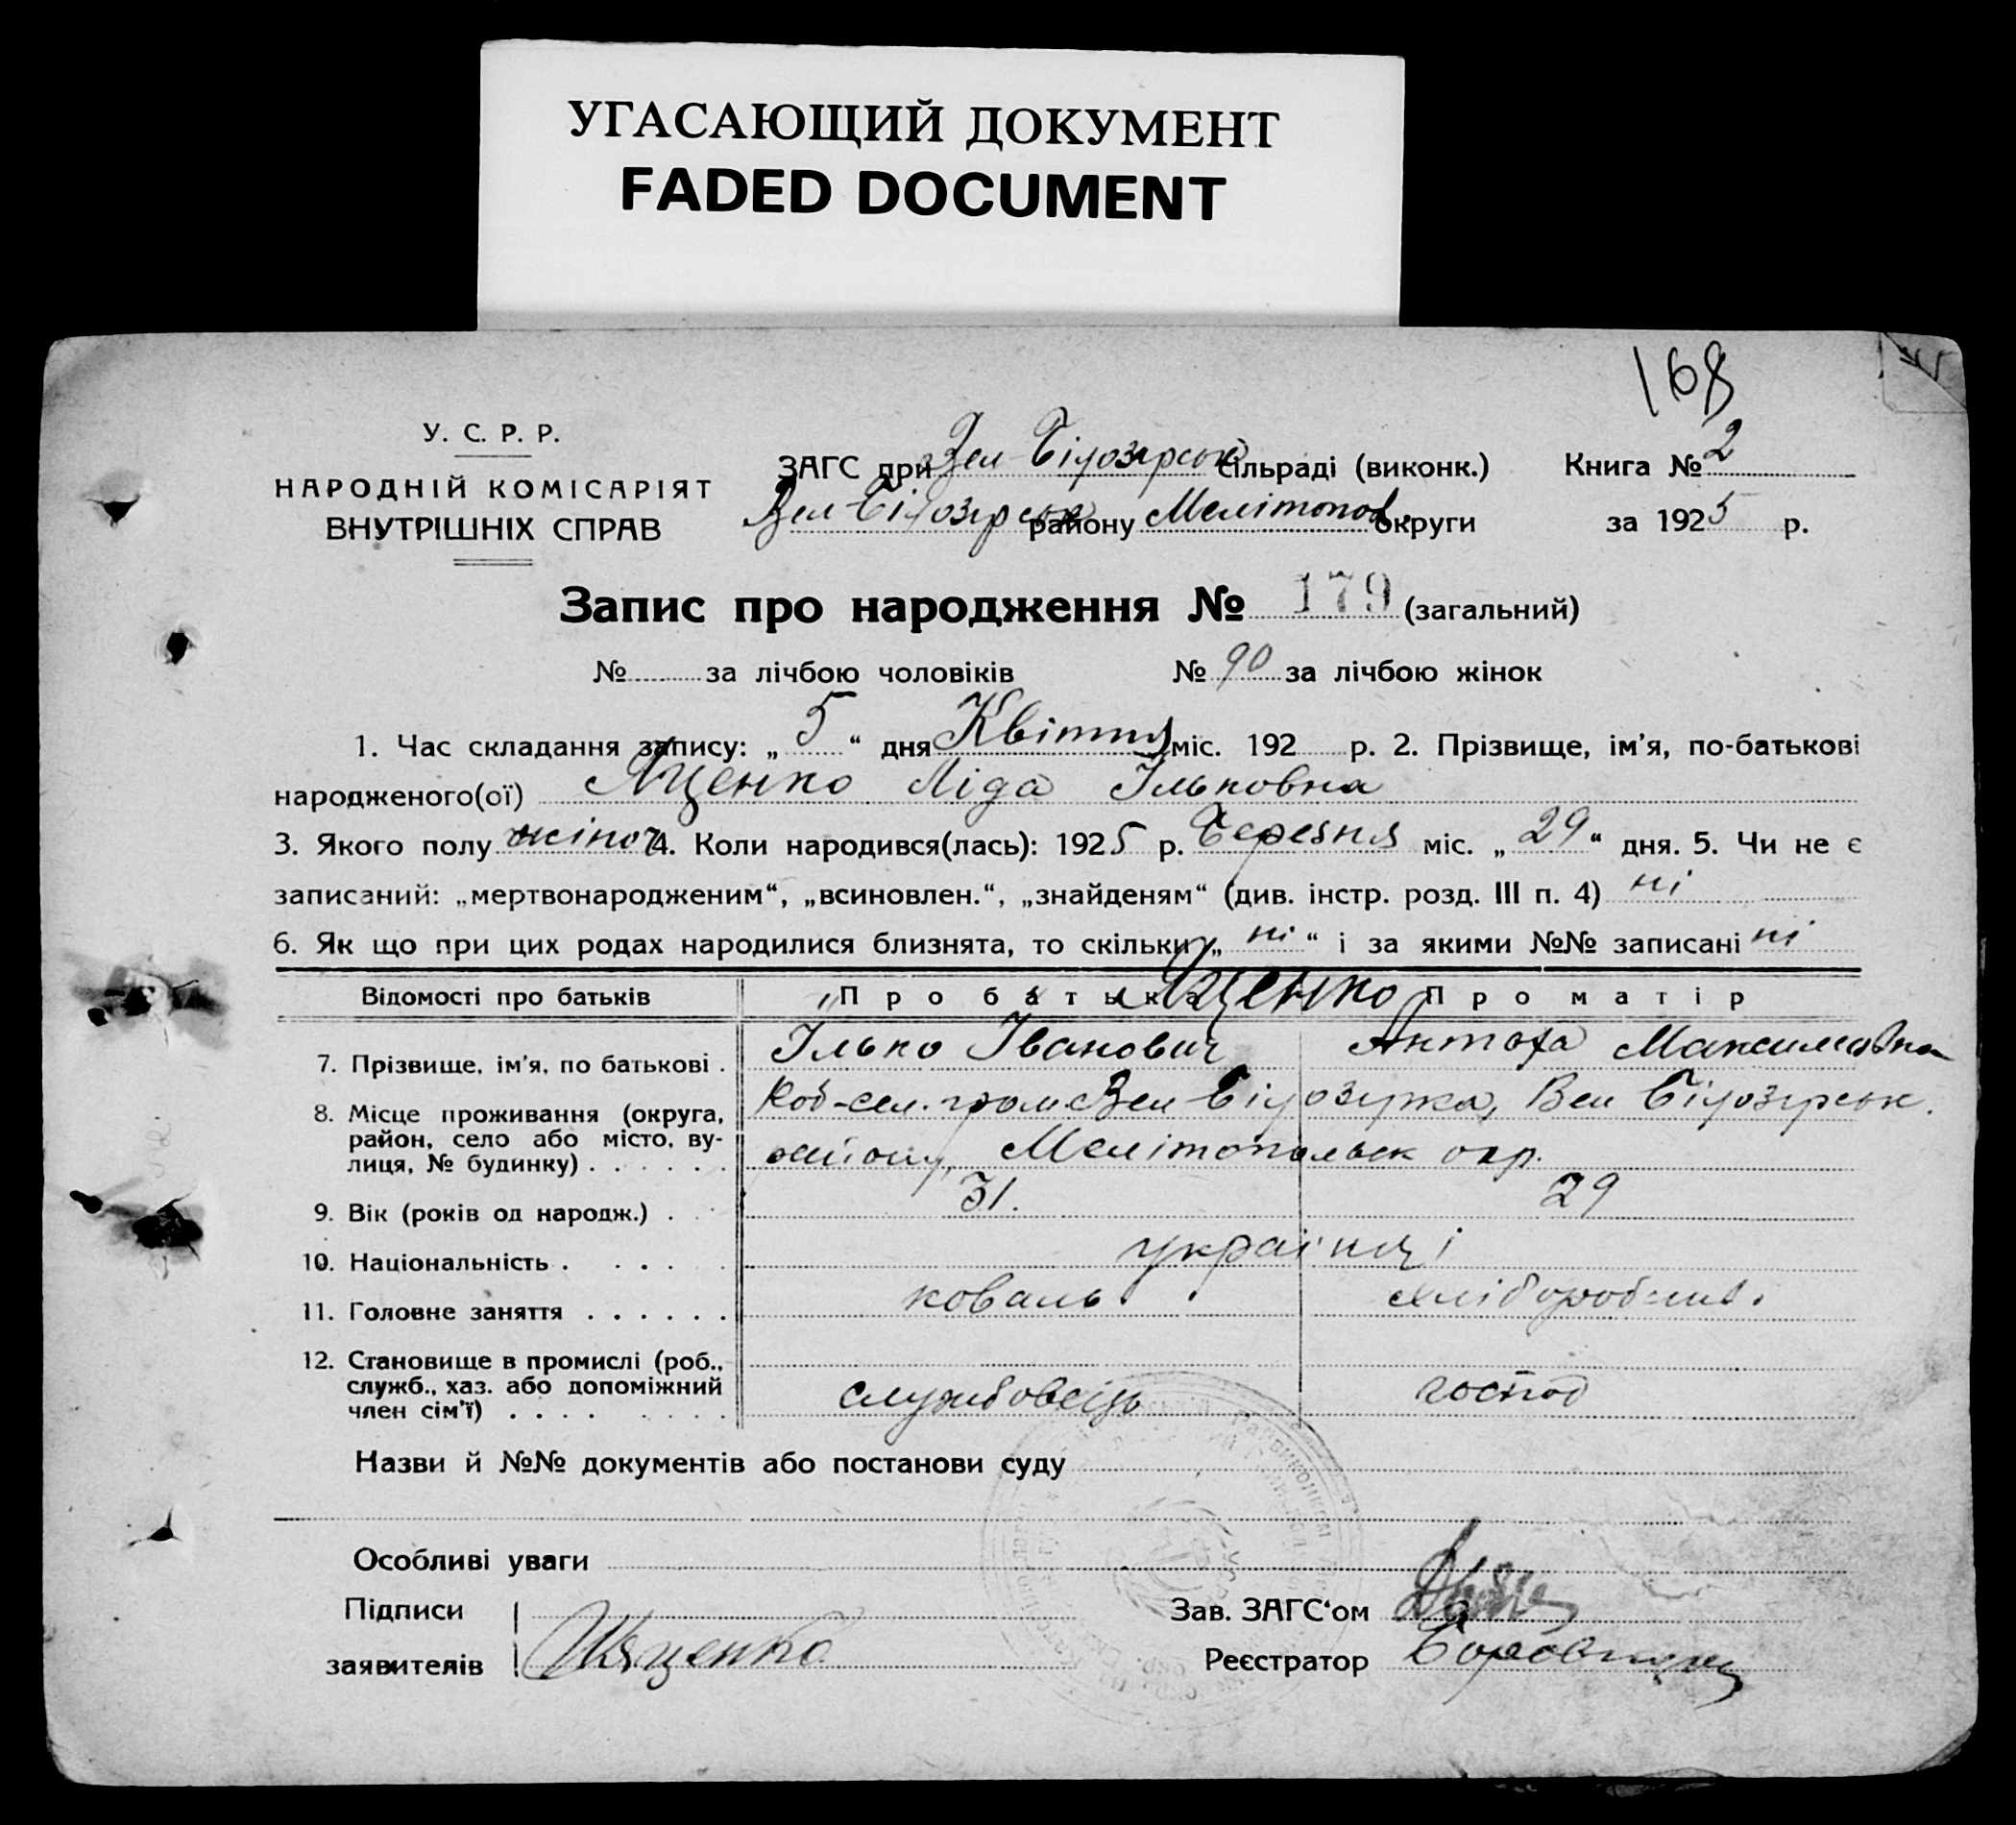 УГАСАЮЩИЙ ДОКУМЕНТ
FADED DOCUMENT
168
У. С. Р. Р.
НАРОДНІЙ КОМІСАРІЯТ
ВНУТРІШНІХ СПРАВ
ЗАГС при Вел Білозірськ сільраді (виконк.)
Вел Білозірськ району Мелітопол. округи
Книга № 2
за 1925 р.
Запис про народження № 179 (загальний)
№ за лічбою чоловіків № 90 за лічбою жінок
1. Час складання запису: „ 5 “ дня Квітня міс. 192 р. 2. Прізвище, ім'я, по-батькові
народженого(ої) Яценко Ліда Ільковна
3. Якого полу жіноч 4. Коли народився(лась): 1925 р. Березня міс. „ 29 “ дня. 5. Чи не є
записаний: „мертвонародженим“, „всиновлен.“, „знайденям“ (див. інстр. розд. III п. 4) ні
6. Як що при цих родах народилися близнята, то скільки „ ні “ і за якими №№ записані ні
Відомості про батьків Про батька Яценко Про матір
7. Прізвище, ім'я, по батькові . Ілько Іванович Максимовна
8. Місце проживання (округа, район, село або місто, вулиця, № будинку) . . . . . . Вел Білозірка, Вел Білозірськ.
району, Мелітопольськ окр.
9. Вік (років од народж.) . 31. 29
10. Національність . . . . українці
11. Головне заняття . . . . . . коваль
12. Становище в промислі (роб., служб., хаз. або допоміжний член сім'ї) . . . . службовець господ
Назви й №№ документів або постанови суду
Особливі уваги
Підписи
заявителів Яценко
Зав. ЗАГС'ом
Реєстратор